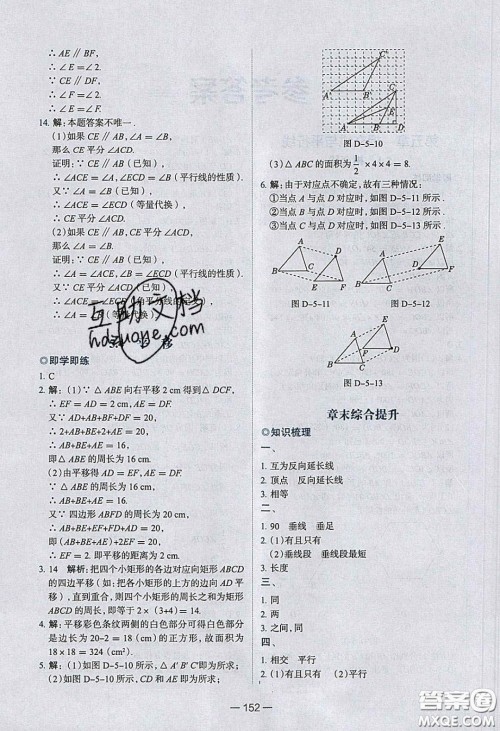 ∴ AE ∥ BF,
∴ ∠E = ∠2.
∵ CE ∥ DF,
∴ ∠E = ∠F.
∴ ∠E = ∠F.
14. 解：本题答案不唯一.
(1)如果 CE ∥ AB，∠A = ∠B，
那么 CE 平分∠ACD.
证明：∵ CE ∥ AB（已知），
∴ ∠A = ∠ACE，∠B = ∠ECD（平行线的性质）.
又∵ ∠A = ∠B（已知），
∴ ∠ACE = ∠ECD（等量代换）.
∴ CE 平分∠ACD.
那么∠A = ∠B.
证明：∵ CE ∥ AB（已知），
∴ ∠A = ∠ACE，∠B = ∠ECD（平行线的性质）.
又∵ CE 平分∠ACD（已知），
互助文档
hdouoye.com
◎即学即练
1. C
2. 解：(1)∵ △ ABE 向右平移 2 cm 得到△ DCF，
∴ EF = AD = 2 cm，AE = DF.
又∵ AD+AB+BF+DF = 20，
∴ AD+AB+BE+EF+AE = 20，
∴ AB+BE+AE = 16，
即△ ABE 的周长为 16 cm.
(2)由平移得 AD = EF = 2 cm，AE = DF.
∵ △ ABE 的周长为 16 cm，
∴ AB+BE+AE = 16.
又∵ 四边形 ABFD 的周长为 20 cm，
∴ AB+BE+EF+DF+AD = 20，
即 AB+BE+AE+2EF = 20，
3. 14 解析：把四个小矩形的各边对应向矩形 ABCD
的四边平移（如：把各小矩形的上方的边向 AD 平
移），直到重合，则四个小矩形的周长之和为矩形
ABCD 的周长，所以答案为 2×(3+4)= 14.
4. 解：平移彩色条纹两侧的白色部分可得白色部分
是边长为 20-2 = 18（cm）的正方形，故面积为
18×18 = 324（cm²）.
5. 解：(1)如图 D-5-10 所示，△ A′ B′ C′即为所求；
(2)如图 D-5-10 所示，AD 和 CE 即为所求；
图 D-5-10
(3)△ ABC 的面积为 1/2 ×4×4 = 8.
6. 解：由于对应点不确定，故有三种情况：
①当点 A 与点 D 对应时，如图 D-5-11 所示.
②当点 A 与点 E 对应时，如图 D-5-12 所示.
图 D-5-11
图 D-5-12
图 D-5-13
章末综合提升
◎知识梳理
一、
1. 互为反向延长线
2. 顶点 反向延长线
3. 相等
二、
1. 90 垂线 垂足
2. (1)有且只有
(2)垂线段 垂线段最短
3. 长度
三、
1. 同
2. 两
3. 之间 同
四、
1. 相交 平行
2. (1)有且只有 (2)平行
— 152 —
答案圈
MXQE.COM